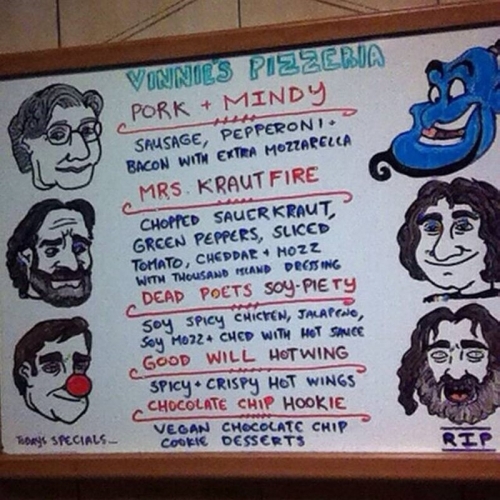 VINNIE'S PIZZERIA
PORK + MINDY
SAUSAGE, PEPPERONI +
BACON WITH EXTRA MOZZARELLA
MRS. KRAUTFIRE
CHOPPED SAUERKRAUT,
GREEN PEPPERS, SLICED
TOMATO, CHEDDAR + MOZZ
WITH THOUSAND ISLAND DRESSING
DEAD POETS SOY-PIETY
SOY SPICY CHICKEN, JALAPENO,
SOY MOZZ + CHED WITH HOT SAUCE
GOOD WILL HOTWING
SPICY + CRISPY HOT WINGS
CHOCOLATE CHIP HOOKIE
VEGAN CHOCOLATE CHIP
COOKIE DESSERTS
TODAYS SPECIALS...
RIP